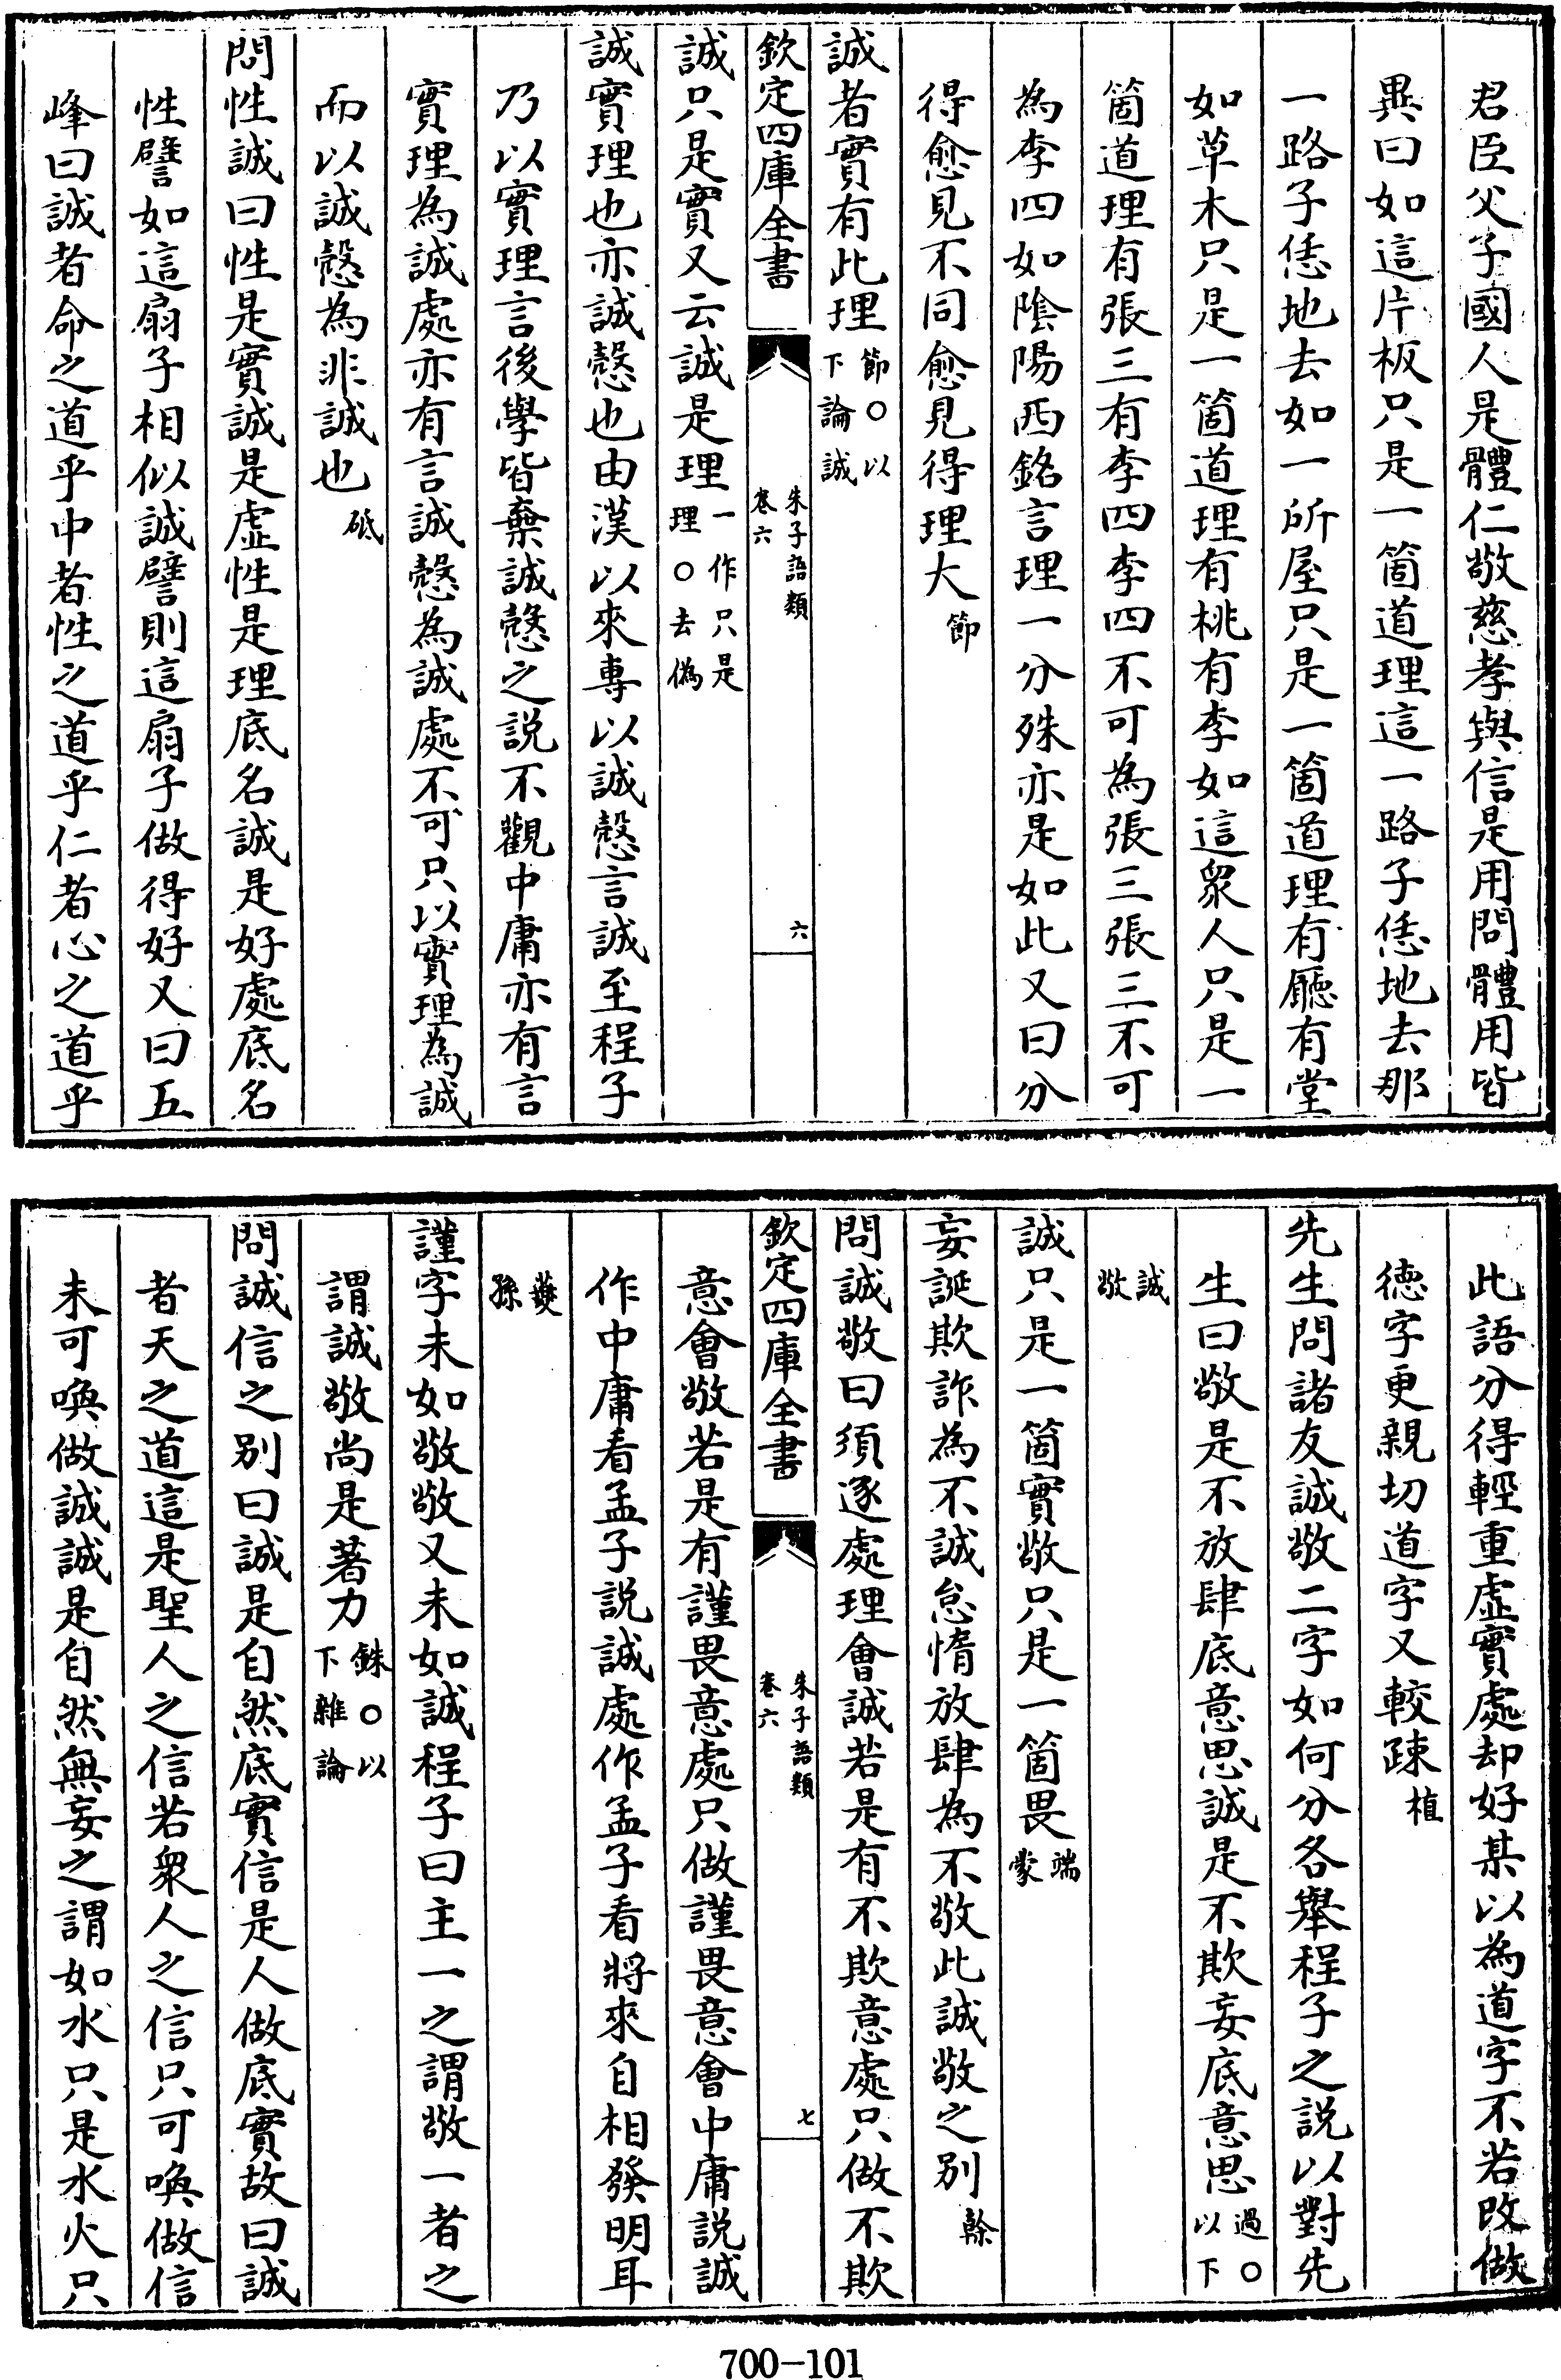 君臣父子國人是體仁敬慈孝與信是用問體用皆
異曰如這片板只是一箇道理這一路子恁地去那
一路子恁地去如一所屋只是一箇道理有廳有堂
如草木只是一箇道理有桃有李如這衆人只是一
箇道理有張三有李四李四不可為張三張三不可
為李四如陰陽西銘言理一分殊亦是如此又曰分
得愈見不同愈見得理大節
誠者實有此理節○以下論誠
欽定四庫全書 朱子語類 卷六 六
誠只是實又云誠是理一作只是理○去偽
誠實理也亦誠慤也由漢以來專以誠慤言誠至程子
乃以實理言後學皆棄誠慤之説不觀中庸亦有言
實理為誠處亦有言誠慤為誠處不可只以實理為誠
而以誠慤為非誠也砥
問性誠曰性是實誠是虚性是理底名誠是好處底名
性譬如這扇子相似誠譬則這扇子做得好又曰五
峰曰誠者命之道乎中者性之道乎仁者心之道乎
此語分得輕重虚實處却好某以為道字不若改做
德字更親切道字又較疎植
先生問諸友誠敬二字如何分各舉程子之説以對先
生曰敬是不放肆底意思誠是不欺妄底意思過○以下
誠敬
誠只是一箇實敬只是一箇畏端蒙
妄誕欺詐為不誠怠惰放肆為不敬此誠敬之别榦
問誠敬曰須逐處理會誠若是有不欺意處只做不欺
欽定四庫全書 朱子語類 卷六 七
意會敬若是有謹畏意處只做謹畏意會中庸説誠
作中庸看孟子説誠處作孟子看將來自相發明耳
䕫孫
謹字未如敬敬又未如誠程子曰主一之謂敬一者之
謂誠敬尚是著力銖○以下雜論
問誠信之别曰誠是自然底實信是人做底實故曰誠
者天之道這是聖人之信若衆人之信只可喚做信
未可喚做誠誠是自然無妄之謂如水只是水火只
700-101